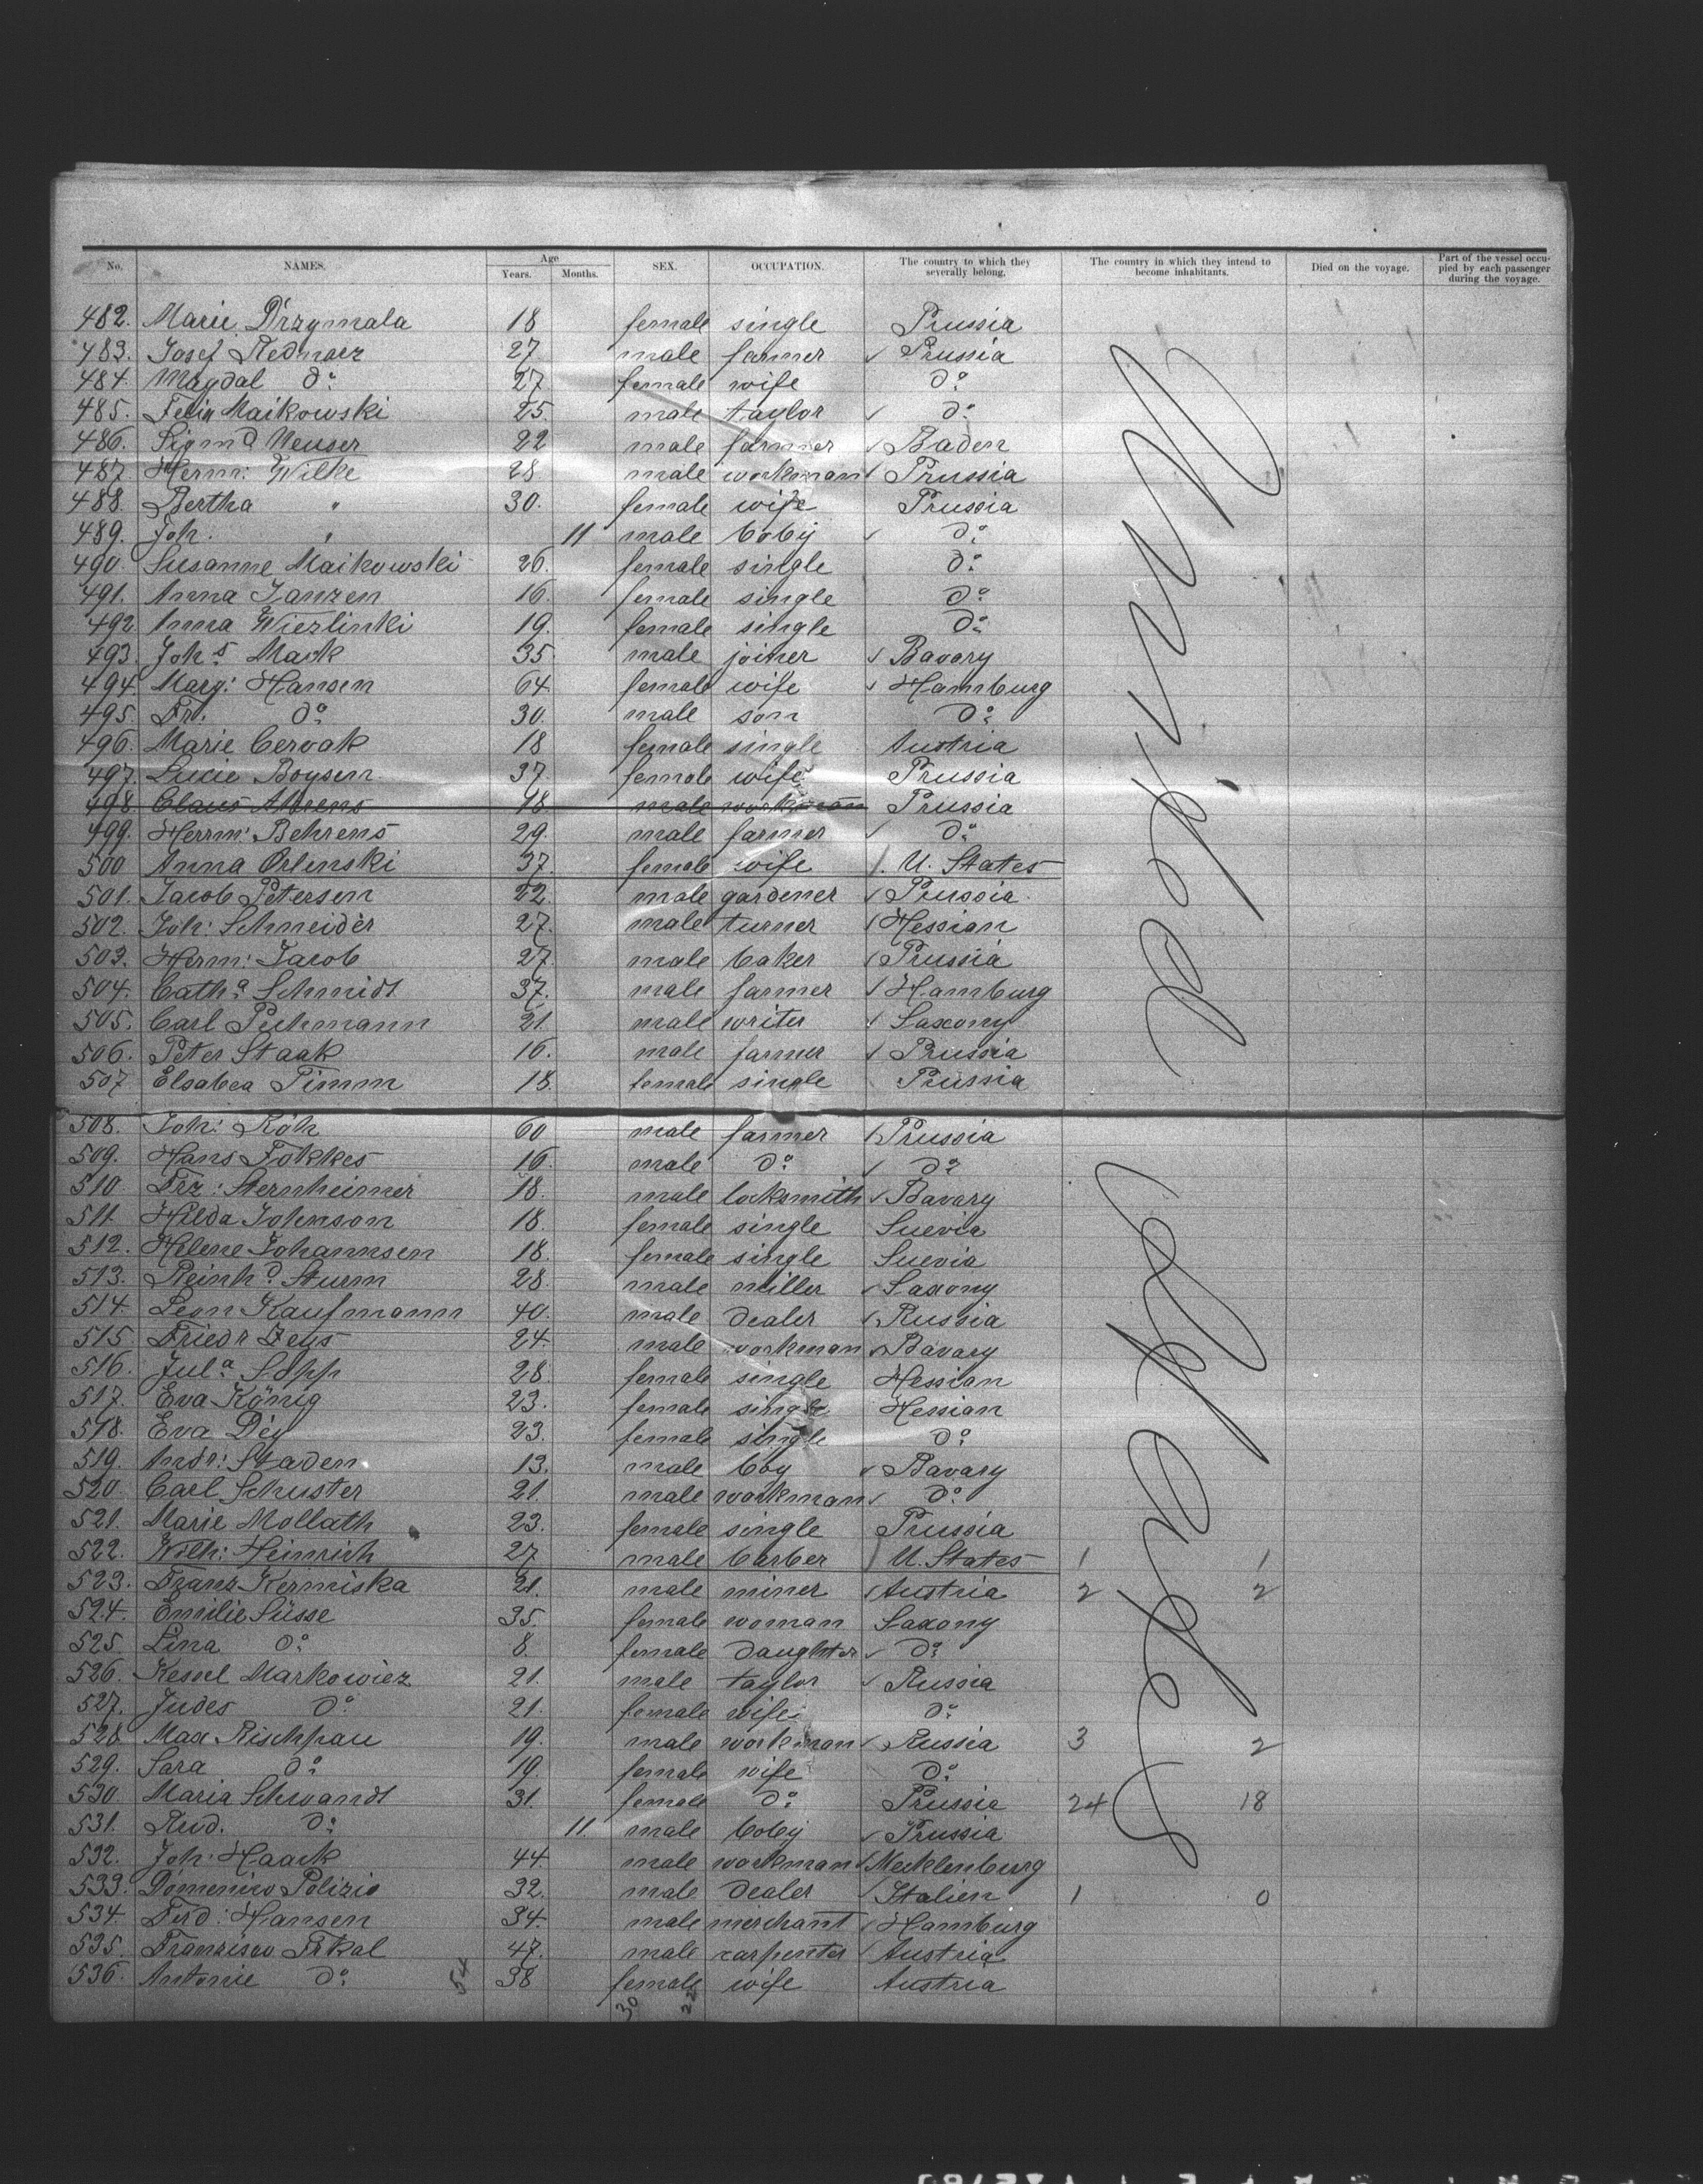 No. NAMES. Age Years. Months. SEX. OCCUPATION. The country to which they severally belong. The country in which they intend to become inhabitants. Died on the voyage. Part of the vessel occupied by each passenger during the voyage.
482. Marie Drzymala 18 female single Prussia
483. Josef Redmarz 27 male farmer Prussia
484. Magdal do 27 female wife do
485. Felix Maikowski 25. male taylor do
486. Sigmd Neuser 22 male farmer Baden
487. Herm: Wilke 28 male workman Prussia
488. Bertha " 30. female wife Prussia
489. Joh. " 11 male boby do
490. Susanne Maikowski 26. female single do
491. Anna Janzen 16. female single do
492 Anna Wiezlinki 19. female single do
493. Johs Mack 35. male joiner Bavary
494. Marg: Hansen 64 female wife Hamburg
495. Fr: do 30. male son do
496. Marie Cervak 18 female single Austria
497. Lucie Boysen 37. female wife Prussia
498 Claus Ahrens 18 male workman Prussia
499. Herrm: Behrens 29. male farmer do
500 Anna Orlenski 37. female wife U. States
501. Jacob Petersen 22. male gardener Prussia
502. Joh: Schneider 27. male turner Hessian
503. Herm: Jacob 27 male baker Prussia
504. Catha Schmidt 37. male farmer Hamburg
505. Carl Puhmann 21. male writer Saxony
506. Peter Staak 16. male farmer Prussia
507 Elsabea Timm 18. female single Prussia
508. Joh: Röh 60 male farmer Prussia
509. Hans Fokkes 16 male do do
510. Frz: Sternheimer 18. male locksmith Bavary
511 Hilda Johnson 18. female single Suevia
512. Helene Johannsen 18. female single Suevia
513. Reinhd Sturm 28. male miller Saxony
514. Leon Kaufmann 40. male dealer Russia
515. Friedr Zeys 24. male workman Bavary
516. Jula Sopp 28. female single Hessian
517. Eva König 23. female single Hessian
518. Eva Dey 23. female single do
519. Andr: Staden 13. male boy Bavary
520. Carl Schuster 21. male workman do
521. Marie Mollath 23. female single Prussia
522. Wilh: Heinrich 27 male barber U. States 1 1
523. Franz Kermiska 21. male miner Austria 2 2
524. Emilie Süsse 35. female woman Saxony
525. Lina do 8. female daughter do
526. Kessel Markowicz 21. male taylor Russia
527. Judes do 21. female wife do
528. Max Rischpau 19. male workman Russia 3 2
529. Sara do 19. female wife do
530. Maria Schwandt 31. female do Prussia 24 18
531. Rud. do 11. male boby Prussia
532. Joh: Haack 44. male workman Mecklenburg
533. Domenico Polizio 32. male dealer Italien 1 0
534. Ferd: Hansen 34. male merchant Hamburg
535. Franzisco Frkal 47. male carpenter Austria
536. Antonie do 38 female wife Austria
54 30 22